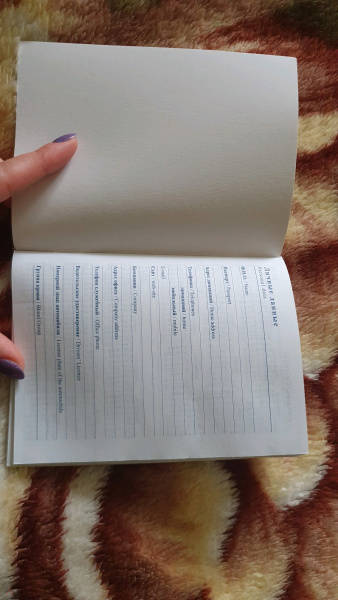 Личные данные
Personal data
Ф.И.О. / Name
Паспорт / Passport
Адрес домашний / Home address
Телефоны / Telephones
домашний / home
мобильный / mobile
E-mail
Сайт / web-site
Компания / Company
Адрес офиса / Company address
Телефон служебный / Office phone
Водительское удостоверение / Drivers' License
Номерной знак автомобиля / License plate of the automobile
Группа крови / Blood Group